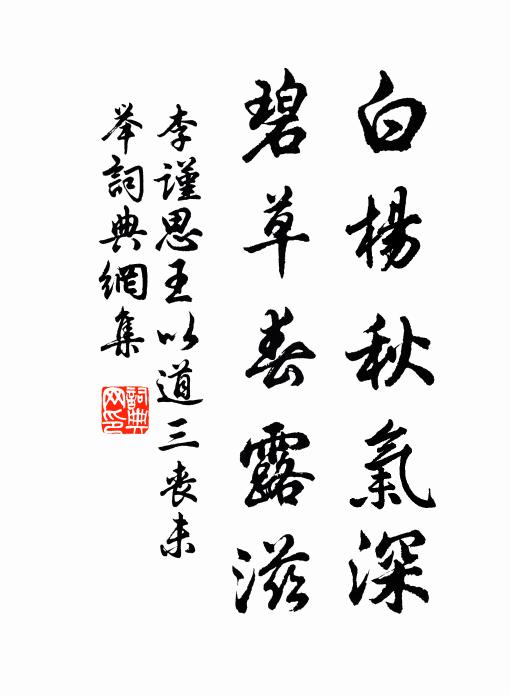 白楊秋氣深
碧草春露滋
李謹思王以道三喪未
举詞典網集
詞典
网印